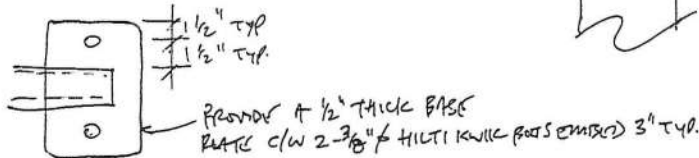 1 1/2" TYP
1 1/2" TYP.
PROVIDE A 1/2" THICK BASE
PLATE C/W 2-3/8"⌀ HILTI KWIK BOLTS EMBED) 3" TYP.